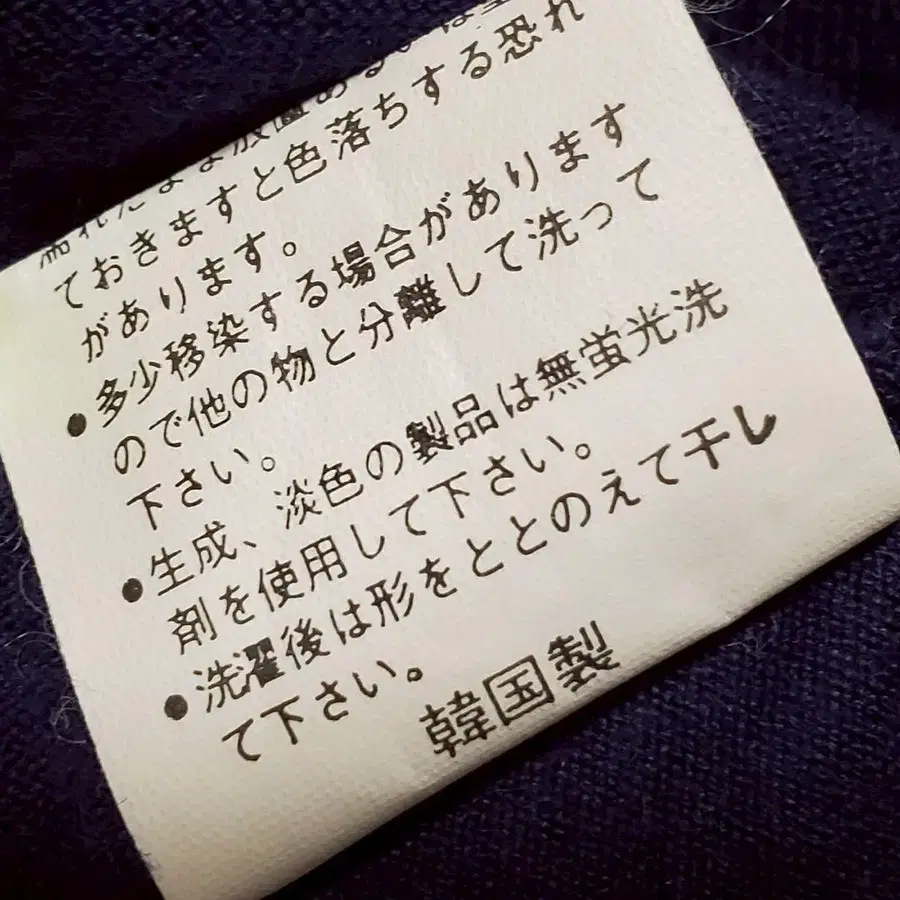 濡れたまま放置あるいは重
ておきますと色落ちする恐れ
があります。
●多少移染する場合があります
ので他の物と分離して洗って
下さい。
●生成、淡色の製品は無蛍光洗
剤を使用して下さい。
●洗濯後は形をととのえて干し
て下さい。
韓国製